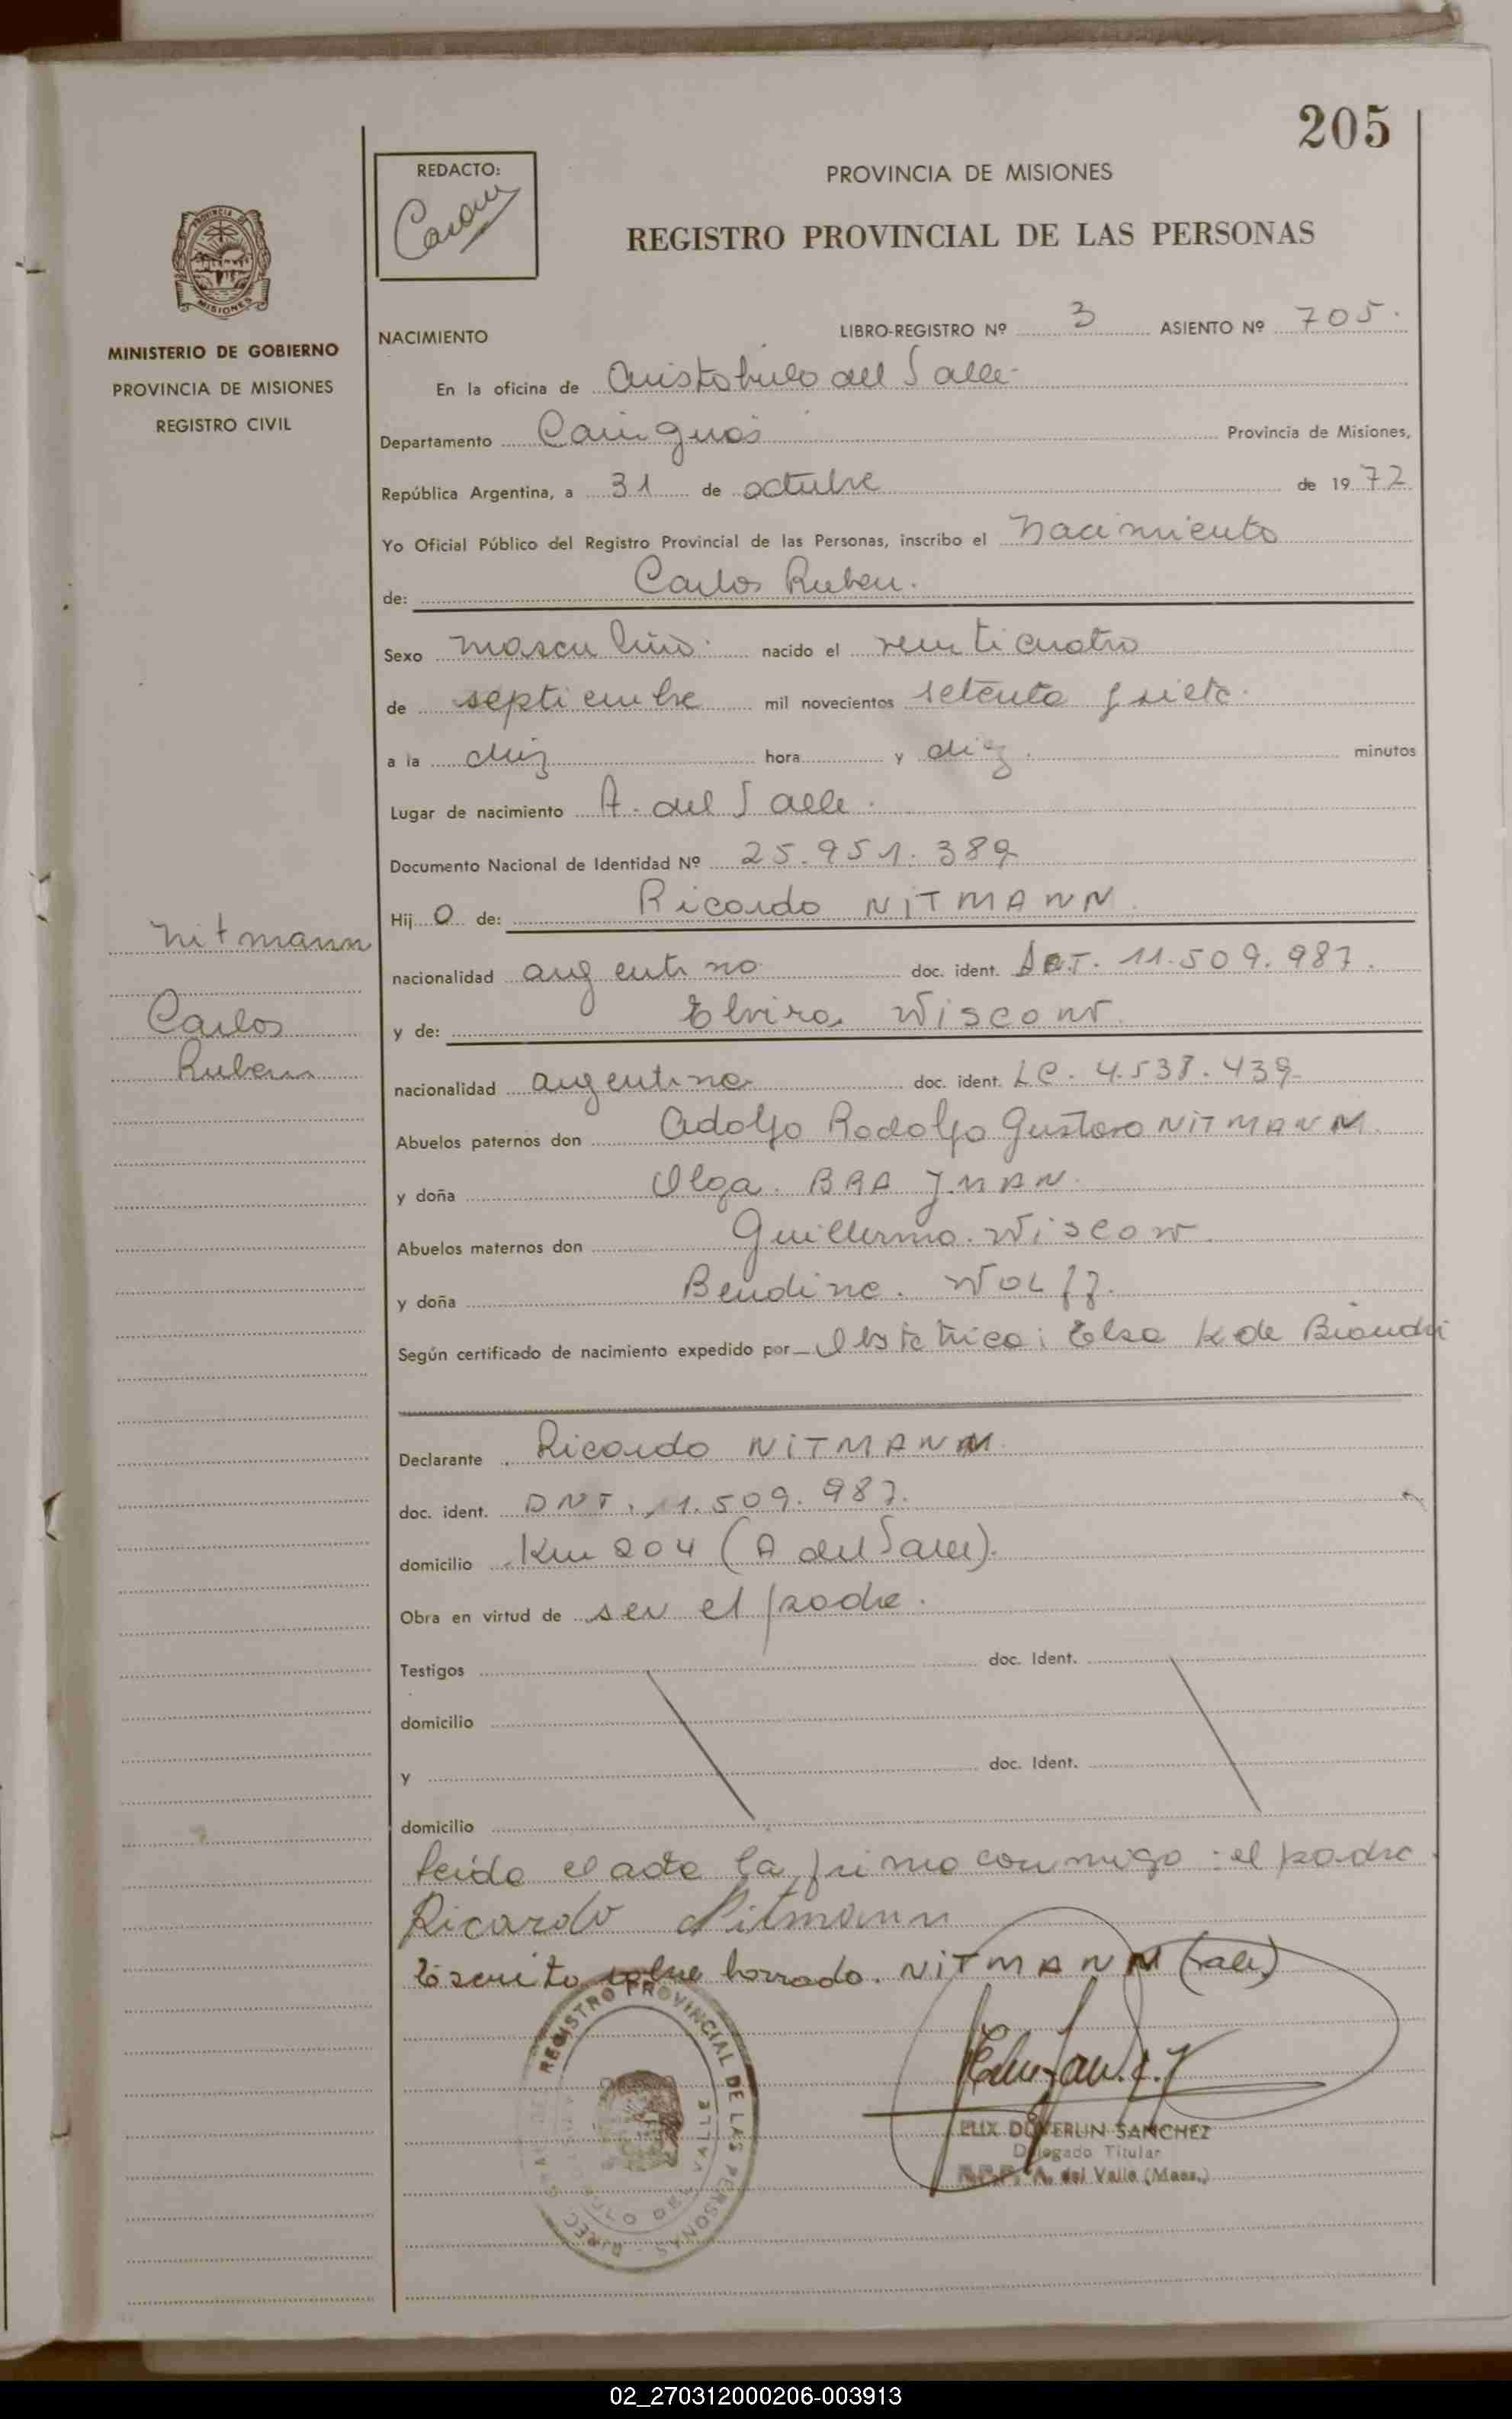 205
REDACTO:
PROVINCIA DE MISIONES
REGISTRO PROVINCIAL DE LAS PERSONAS
MINISTERIO DE GOBIERNO
PROVINCIA DE MISIONES
REGISTRO CIVIL
NACIMIENTO LIBRO-REGISTRO Nº 3 ASIENTO Nº 705.
En la oficina de Aristobulo del Valle
Departamento Cainguás Provincia de Misiones,
República Argentina, a 31 de octubre de 1972
Yo Oficial Público del Registro Provincial de las Personas, inscribo el Nacimiento
de: Carlos Ruben.
Sexo masculino. nacido el veinticuatro
de septiembre mil novecientos setenta y siete.
a la diez hora y diez. minutos
Lugar de nacimiento A. del Valle.
Documento Nacional de Identidad Nº 25.951.389
Hijo de: Ricardo NITMANN.
nacionalidad argentino doc. ident. 11.509.987.
y de: Elvira
nacionalidad argentina doc. ident. LC. 4.538.439
Abuelos paternos don Adolfo Rodolfo Gustavo NITMANN.
y doña Olga.
Abuelos maternos don Guillermo.
y doña WOLff.
Según certificado de nacimiento expedido por Obstetrica: Elsa K de Biondi
Nitmann
Carlos
Ruben
Declarante Ricardo NITMANN.
doc. ident. DNI. 11.509.987.
domicilio Km 204 (A del Valle).
Obra en virtud de ser el padre.
Testigos doc. Ident.
domicilio
y doc. Ident.
domicilio
leida el acta la firma conmigo: el padre.
Ricardo Nitmann
Escrito sobre borrado. NITMANN (vale)
REGISTRO PROVINCIAL DE LAS PERSONAS
SANCHEZ
Delegado Titular
A. del Valle (Mnes.)
02_270312000206-003913